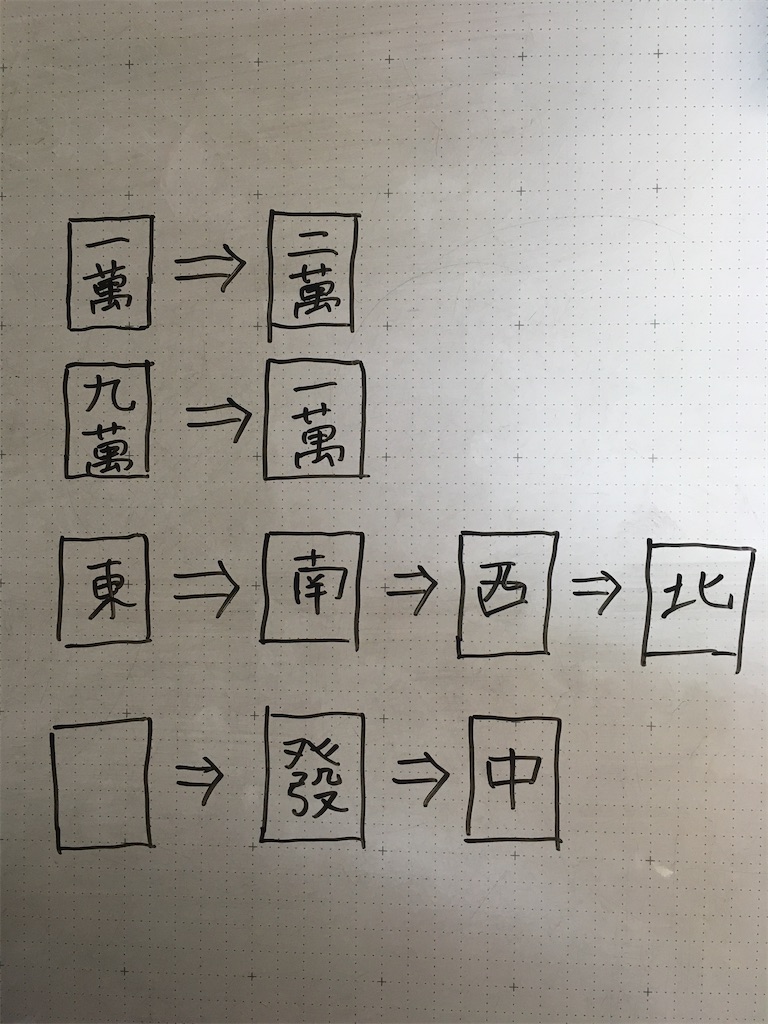 一萬 ⇒ 二萬
九萬 ⇒ 一萬
東 ⇒ 南 ⇒ 西 ⇒ 北
⇒ 發 ⇒ 中